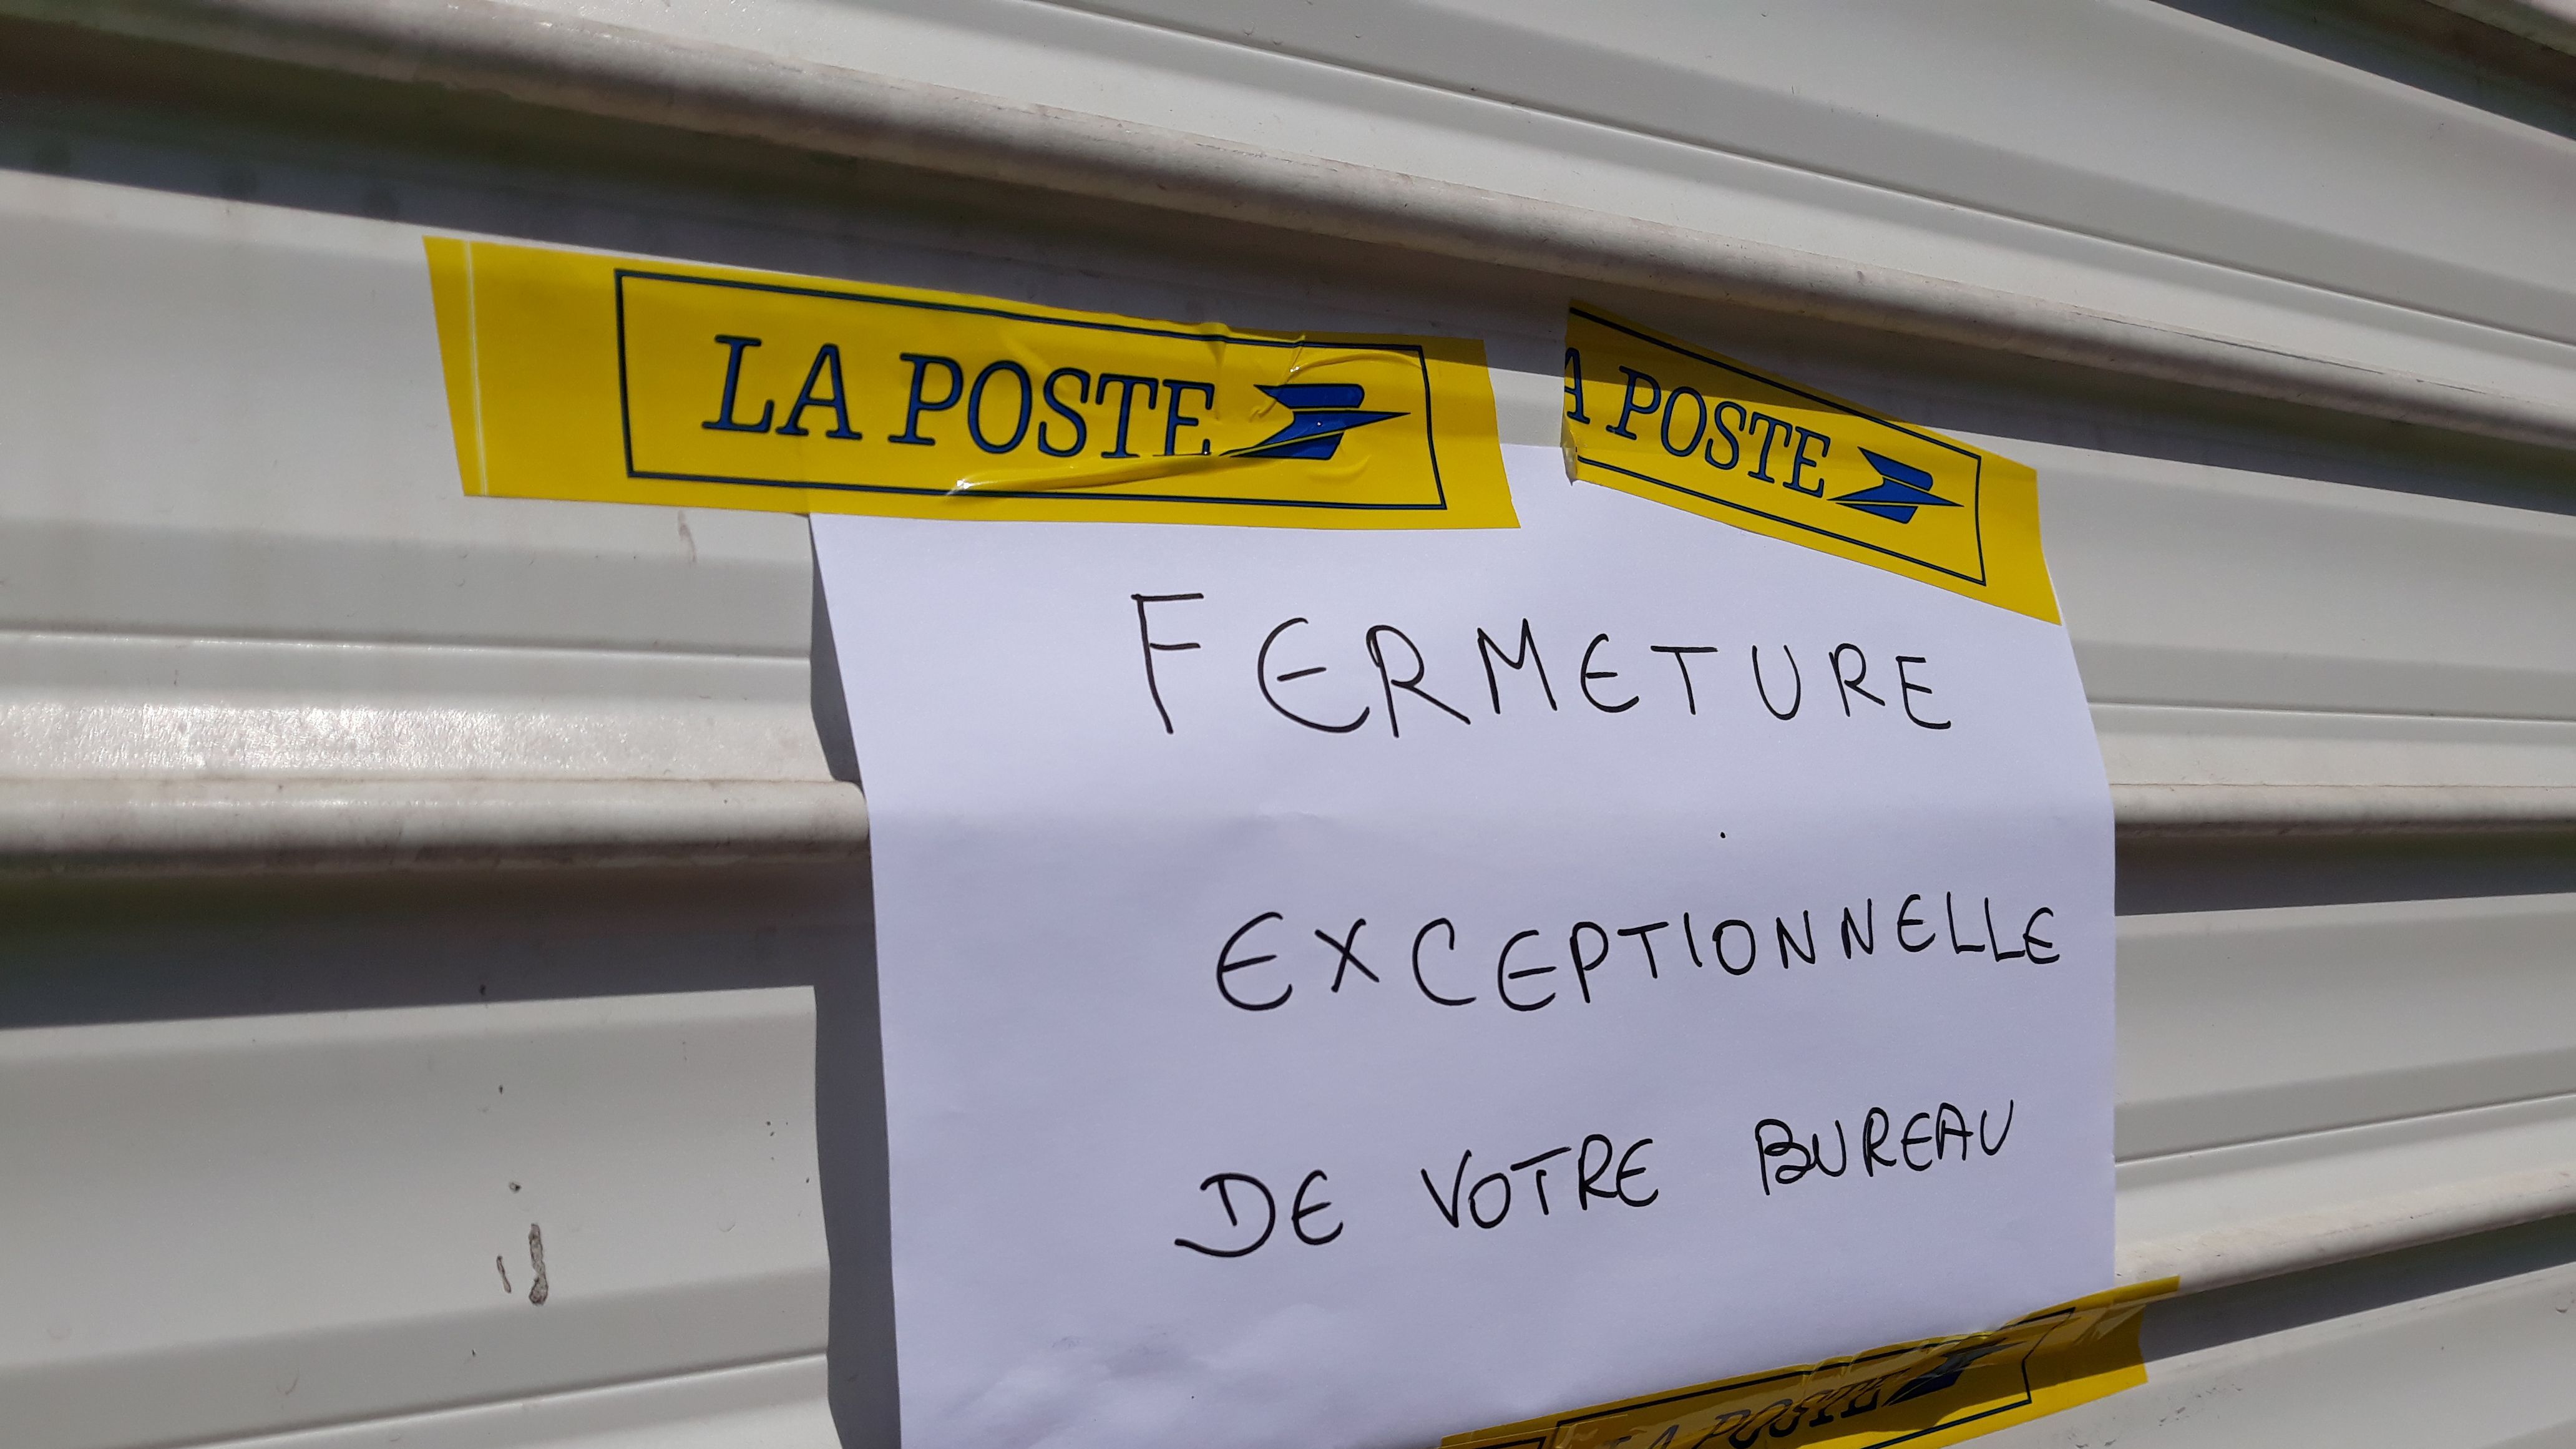 LA POSTE
A POSTE
FERMETURE
EXCEPTIONNELLE
DE VOTRE BUREAU
LA POSTE